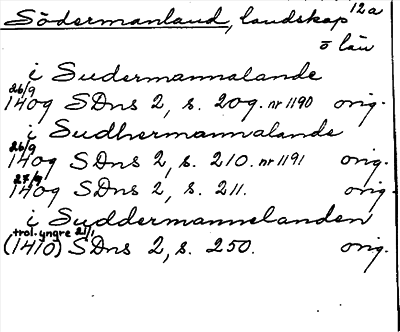 Södermanland, landskap 12a
o län
i Sudermannalande
26/9
1409 SDns 2, s. 209. nr 1190 orig.
i Sudhermannalande
26/9
1409 SDns 2, s. 210. nr 1191 orig.
27/9
1409 SDns 2, s. 211. orig.
i Suddermannelanden
trol. yngre 21/1
(1410) SDns 2, s. 250. orig.